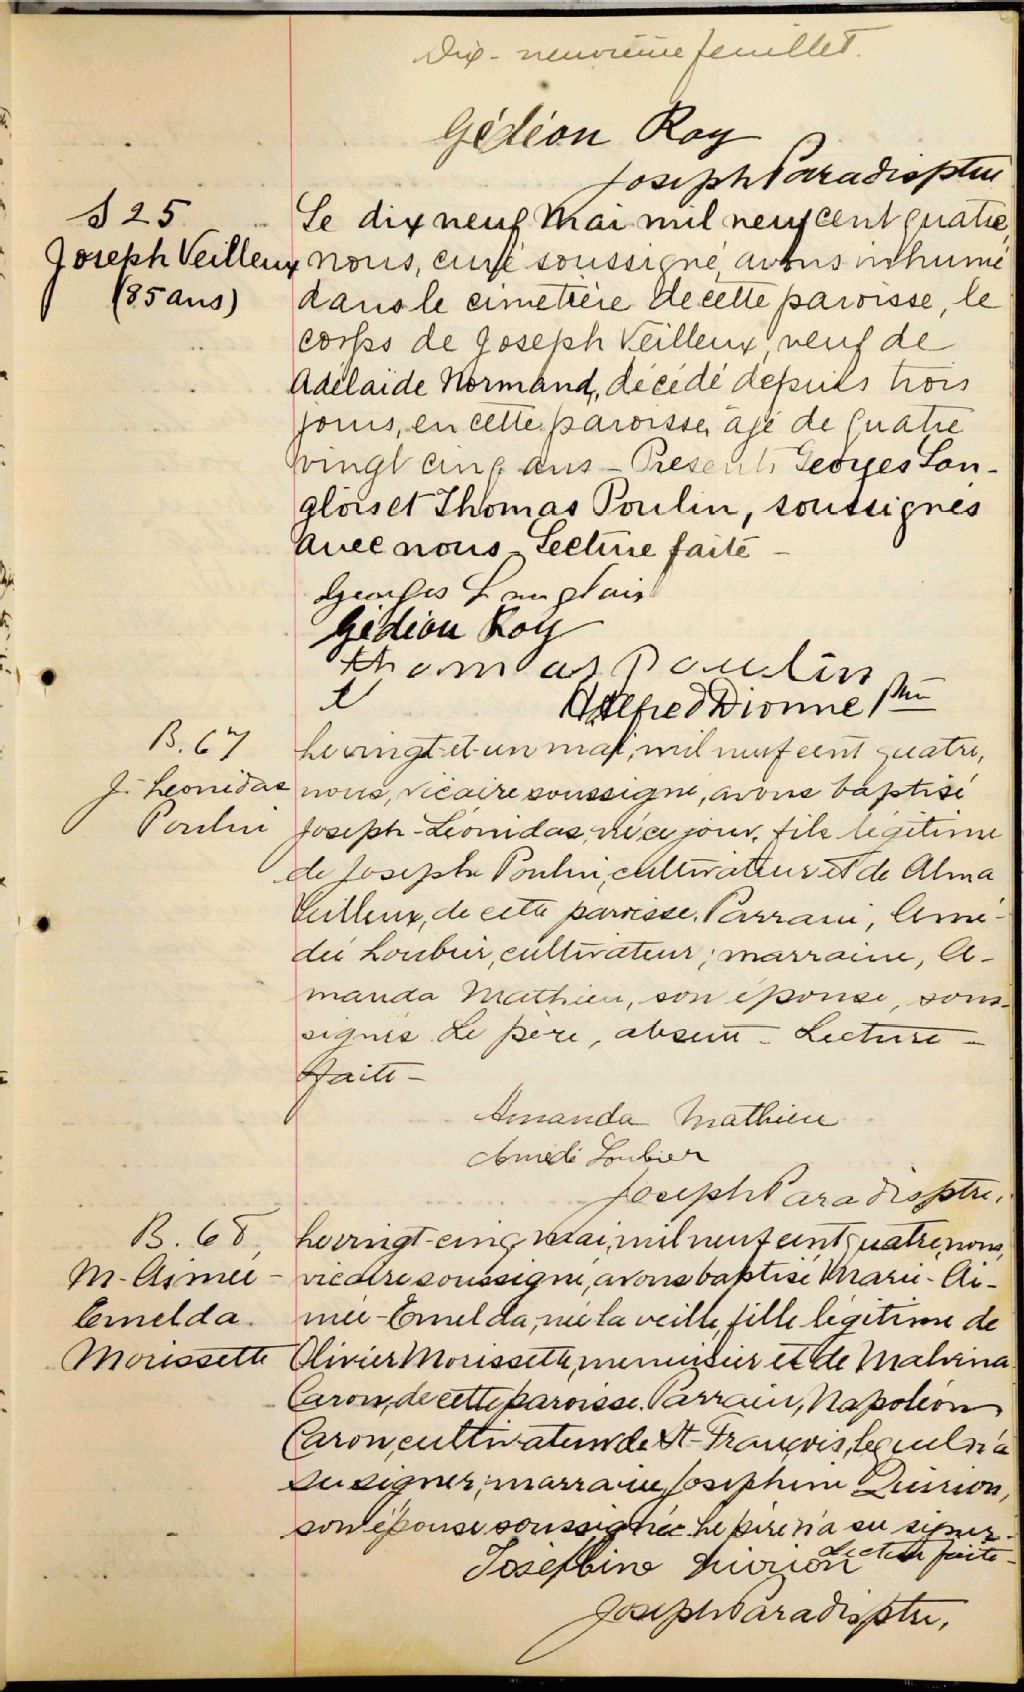 Dix-neuvième feuillet.
Gédéon Roy
Joseph Paradis ptre
S 25
Joseph Veilleux
(85 ans)
Le dix neuf Mai mil neuf cent quatre,
nous, curé soussigné, avons inhumé
dans le cimetière de cette paroisse, le
corps de Joseph Veilleux, veuf de
Adelaïde Normand, décédé depuis trois
jours, en cette paroisse, âgé de quatre
vingt cinq ans - Présents Georges Lan-
glois et Thomas Poulin, soussignés
avec nous - Lecture faite -
Georges Langlois
Gédéon Roy
thomas Poulin
Alfred Dionne Ptre
B. 67
J. Leonidas
Poulin
Le vingt-et-un mai, mil neuf cent quatre,
nous, vicaire soussigné, avons baptisé
Joseph-Léonidas, né ce jour, fils légitime
de Joseph Poulin, cultivateur et de Alma
Veilleux, de cette paroisse. Parrain, Amé-
dée Loubier, cultivateur; marraine, A-
manda Mathieu, son épouse, sous-
signés. Le père, absent - Lecture -
faite -
Amanda Mathieu
Amédé Loubier
Joseph Paradis ptre.
B. 68
M-Aimée-
Emelda
Morissette
Le vingt-cinq mai, mil neuf cent quatre, nous,
vicaire soussigné, avons baptisé Marie-Ai-
mée-Emelda, née la veille, fille légitime de
Olivier Morissette, menuisier et de Malvina
Caron, de cette paroisse. Parrain, Napoléon
Caron, cultivateur de St-François, lequel n'a
su signer; marraine, Josephine Quirion,
son épouse soussignée. Le père n'a su signer -
Lecture faite -
Joséphine Quirion
Joseph Paradis ptre.